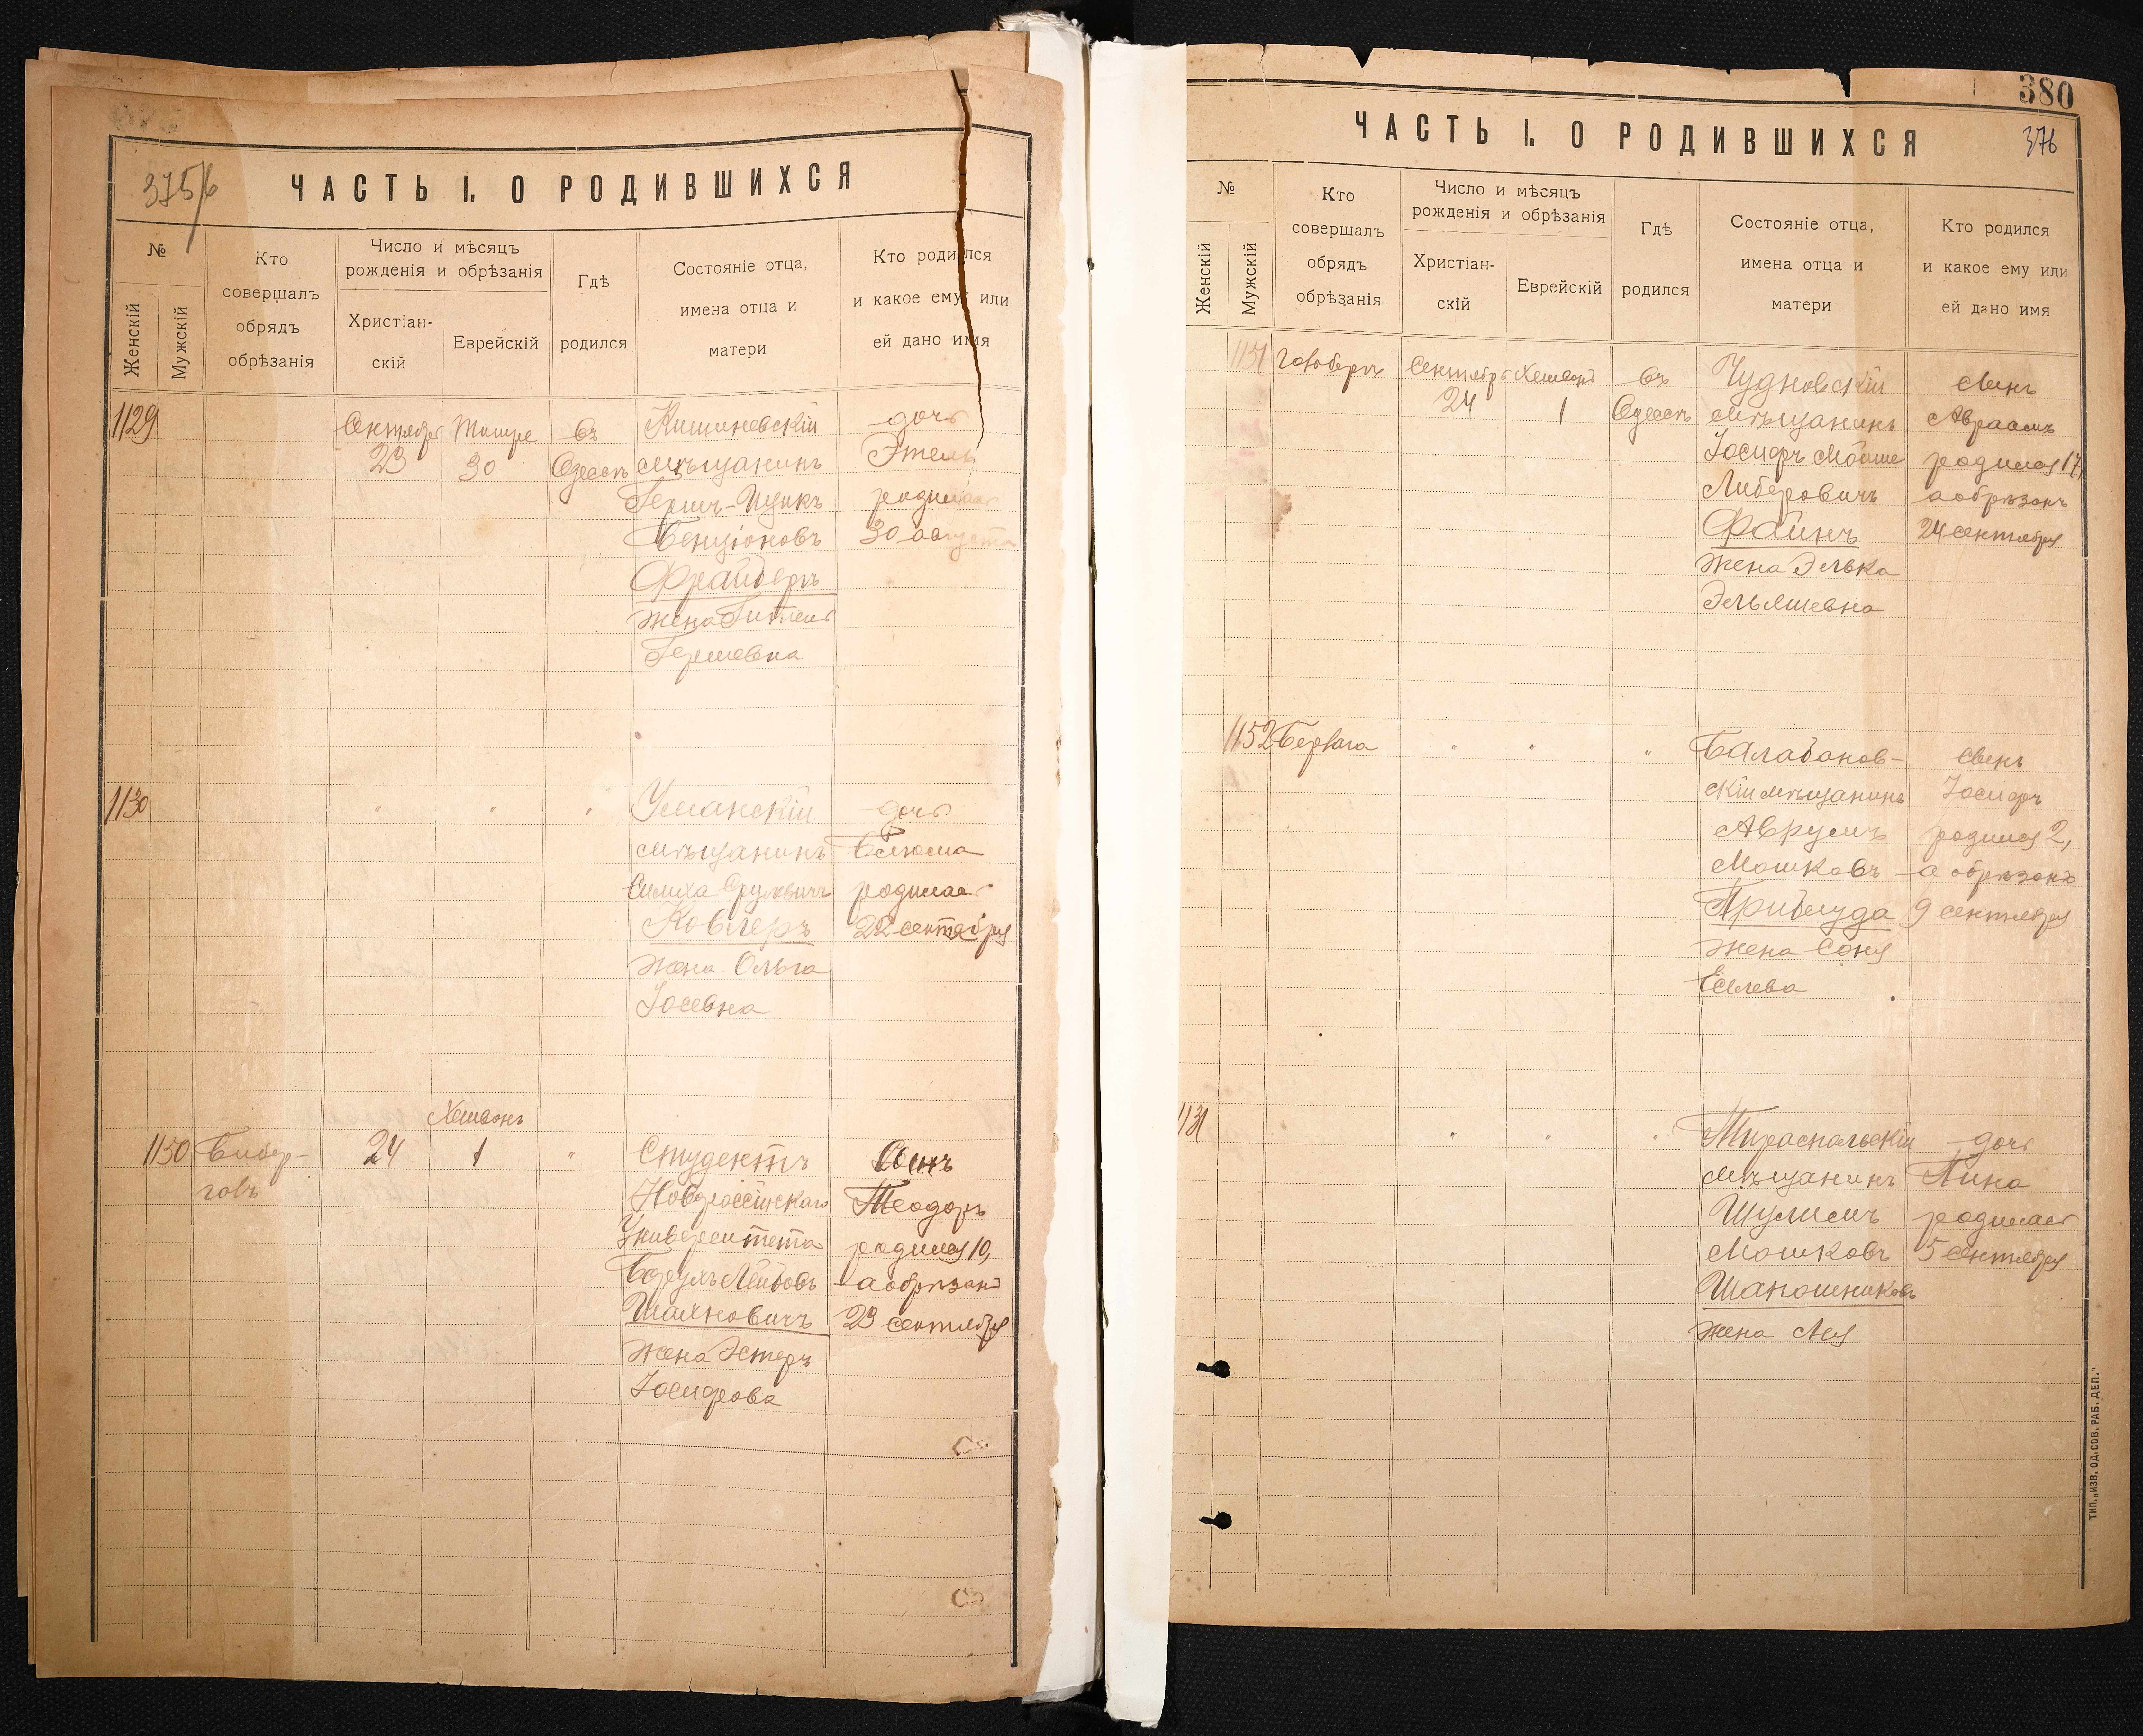 375/6
ЧАСТЬ I. О РОДИВШИХСЯ
№
Женскій
Мужскій
Кто
совершалъ
обрядъ
обрѣзанія
Число и мѣсяцъ
рожденія и обрѣзанія
Христіан-
скій
Еврейскій
Гдѣ
родился
Состояніе отца,
имена отца и
матери
Кто родился
и какое ему или
ей дано имя
1129
Сентябрь
23
Тишре
30
въ
Одессѣ
Кишиневскій
мѣщанинъ
Герш-Ицикъ
Бенціоновъ
Фрайберъ
жена
Гершевна
дочь
Этель
родилась
30 августа
1130
"
"
"
Уманскій
мѣщанинъ
Симха Сруловичъ
Ковлеръ
жена Ольга
Іосевна
дочь
родилась
22 сентября
1150
Бибер-
говъ
24
Хешвонъ
1
"
Студентъ
Новороссійскаго
Университета
Берулъ Лейбовъ
Шахновичъ
жена Эстеръ
Іосифова
Сынъ
Теодоръ
родился 10,
а обрѣзанъ
23 сентября
380
376
ЧАСТЬ I. О РОДИВШИХСЯ
№
Женскій
Мужскій
Кто
совершалъ
обрядъ
обрѣзанія
Число и мѣсяцъ
рожденія и обрѣзанія
Христіан-
скій
Еврейскій
Гдѣ
родился
Состояніе отца,
имена отца и
матери
Кто родился
и какое ему или
ей дано имя
1151
Сентябрь
24
Хешвонъ
1
въ
Одессѣ
Чудновскій
мѣщанинъ
Іосифъ Мойше
Либеровичъ
Файнъ
жена Элька
Эльяшевна
сынъ
Авраамъ
родился 17,
а обрѣзанъ
24 сентября
1152
"
"
"
Балабанов-
скій мѣщанинъ
Аврумъ
Мошковъ
Приблуда
жена Соня
Еселева
сынъ
Іосифъ
родился 2,
а обрѣзанъ
9 сентября
1131
"
"
"
Тираспольскій
мѣщанинъ
Шулимъ
Мошковъ
Шапошниковъ
жена Лея
дочь
родилась
5 сентября
ТИП. „ИЗВ. ОД. СОВ. РАБ. ДЕП."